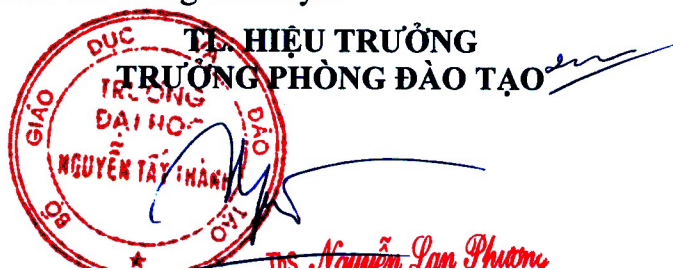 TL. HIỆU TRƯỞNG
TRƯỞNG PHÒNG ĐÀO TẠO
BỘ GIÁO DỤC VÀ ĐÀO TẠO
TRƯỜNG
ĐẠI HỌC
NGUYỄN TẤT THÀNH
ThS. Nguyễn Lan Phương